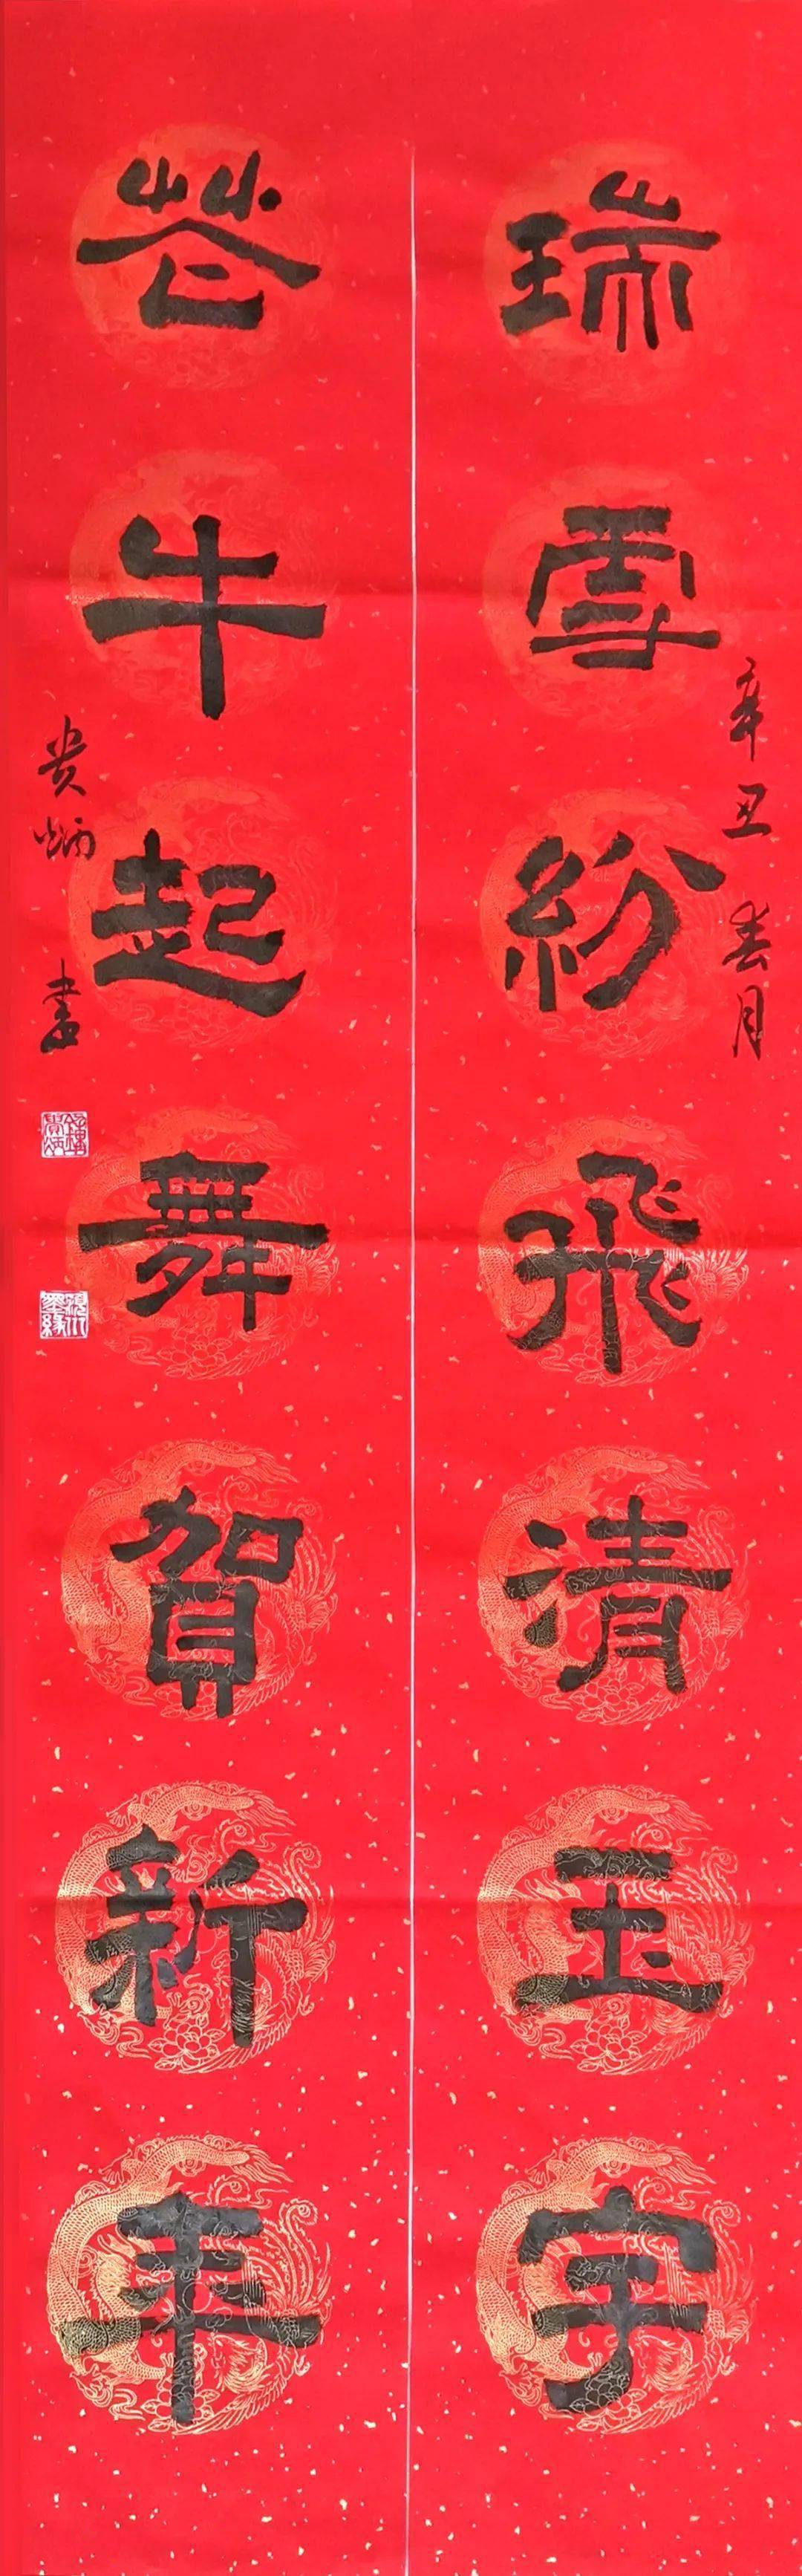 辛丑春月
瑞雪紛飛清玉宇
苍牛起舞賀新年
贵炳書